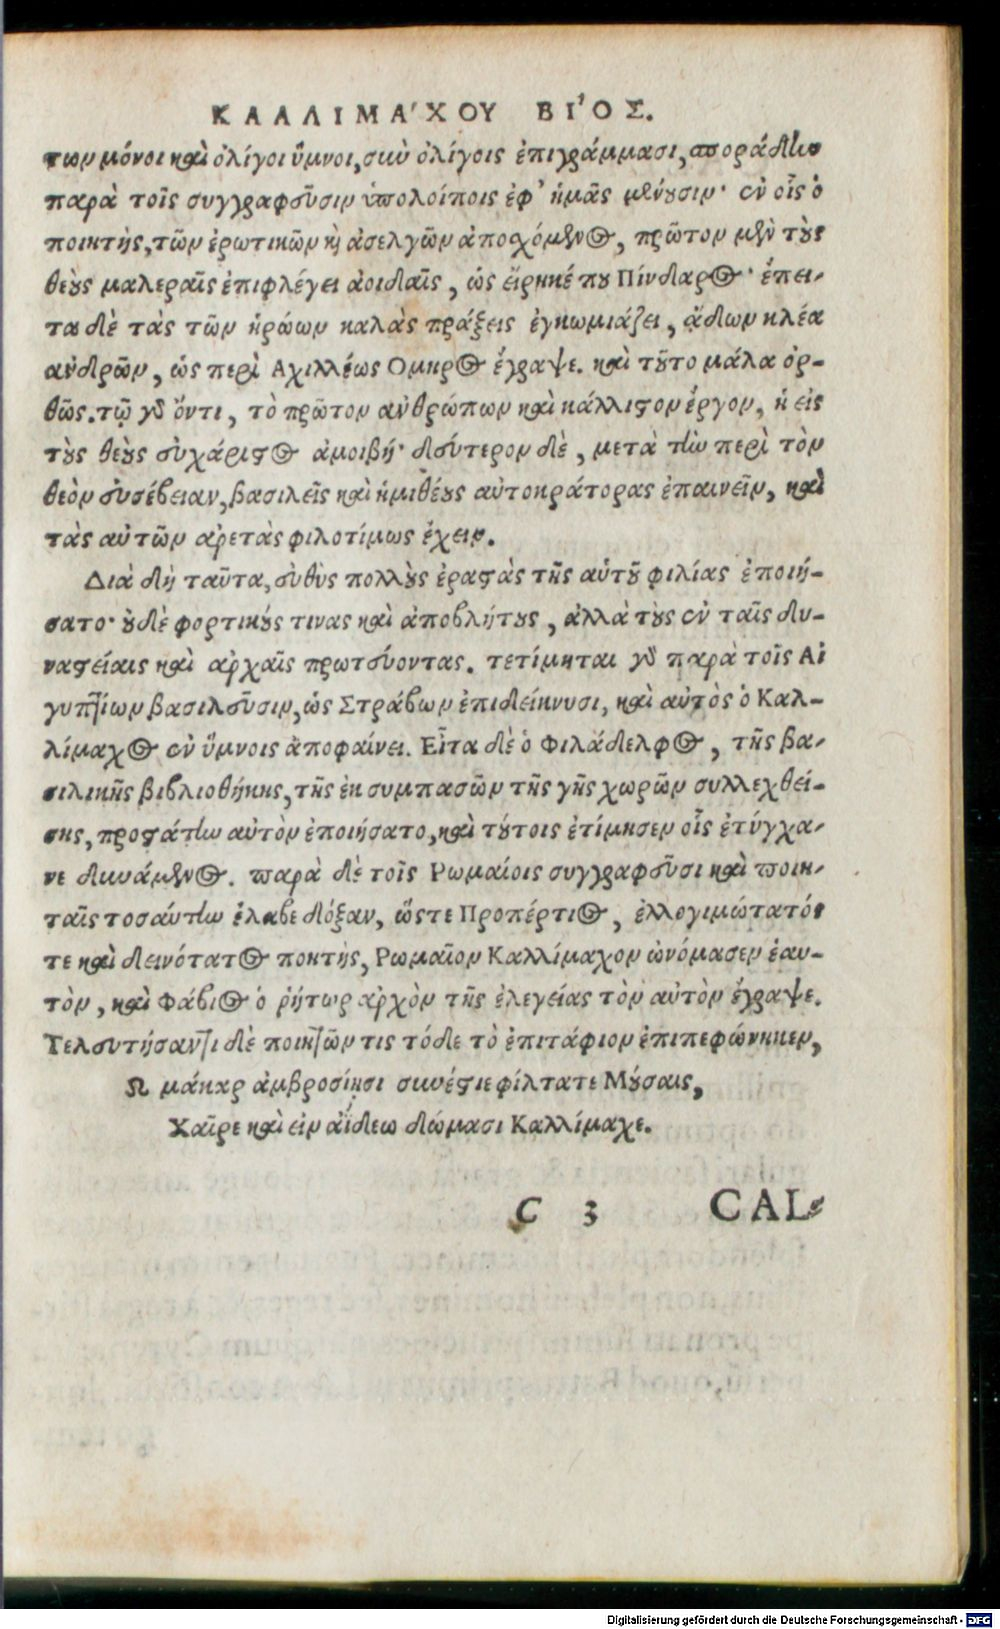 ΚΑΛΛΙΜΑ'ΧΟΥ ΒΙ'ΟΣ.
των μόνοι καὶ ὀλίγοι ὕμνοι, σὺν ὀλίγοις ἐπιγράμμασι, σποράδlω
παρὰ τοῖς συγγραφεῦσιν ὑπολοίποις ἐφ' ἡμᾶς μένουσιν· ἐν οἷς ὁ
ποιητὴς, τῶν ἐρωτικῶν κὶ ἀσελγῶν ἀποσχόμενος, πρῶτον μὲν τοὺς
θεοὺς μαλεραῖς ἐπιφλέγει ἀοιδαῖς, ὡς εἴρηκέ που Πίνδαρος· ἔπει-
τα δὲ τὰς τῶν ἡρώων καλὰς πράξεις ἐγκωμιάζει, ᾄδων κλέα
ἀνδρῶν, ὡς περὶ Αχιλλέως Ομηρος ἔγραψε. καὶ τοῦτο μάλα ὀρ-
θῶς. τῷ γὸ ὄντι, τὸ πρῶτον ἀνθρώπων καὶ κάλλιστον ἔργον, ἡ εἰς
τοὺς θεοὺς εὐχάριστος ἀμοιβή· δεύτερον δὲ, μετὰ τὴν περὶ τὸν
θεὸν εὐσέβειαν, βασιλεῖς καὶ ἡμιθέους αὐτοκράτορας ἐπαινεῖν, καὶ
τὰς αὐτῶν ἀρετὰς φιλοτίμως ἔχειν.
Διὰ δὴ ταῦτα, εὐθὺς πολλοὺς ἐραστὰς τῆς αὑτοῦ φιλίας ἐποιή-
σατο· οὐδὲ φορτικούς τινας καὶ ἀποβλήτους, ἀλλὰ τοὺς ἐν ταῖς δυ-
ναστείαις καὶ ἀρχαῖς πρωτεύοντας. τετίμηται γὸ παρὰ τοῖς Αἰ
γυπτίων βασιλεῦσιν, ὡς Στράβων ἐπιδείκνυσι, καὶ αὐτὸς ὁ Καλ-
λίμαχος ἐν ὕμνοις ἀποφαίνει. Εἶτα δὲ ὁ Φιλάδελφος, τῆς βα-
σιλικῆς βιβλιοθήκης, τῆς ἐκ συμπασῶν τῆς γῆς χωρῶν συλλεχθεί-
σης, προστάτην αὐτὸν ἐποιήσατο, καὶ τούτοις ἐτίμησεν οἷς ἐτύγχα-
νε δυνάμενος. παρὰ δὲ τοῖς Ρωμαίοις συγγραφεῦσι καὶ ποιη-
ταῖς τοσαύτην ἔλαβε δόξαν, ὥςτε Προπέρτιος, ἐλλογιμώτατός
τε καὶ δεινότατος ποητὴς, Ρωμαῖον Καλλίμαχον ὠνόμασεν ἑαυ-
τὸν, καὶ Φάβιος ὁ ῥήτωρ ἀρχὸν τῆς ἐλεγείας τὸν αὐτὸν ἔγραψε.
Τελευτήσαντι δὲ ποιητῶν τις τόδε τὸ ἐπιτάφιον ἐπιπεφώνηκεν,
Ω μάκαρ ἀμβροσίῃσι συνέστιε φίλτατε Μούσαις,
Χαῖρε καὶ εἰν ἀΐδεω δώμασι Καλλίμαχε.
C 3 CAL-
Digitalisierung gefördert durch die Deutsche Forschungsgemeinschaft - DFG